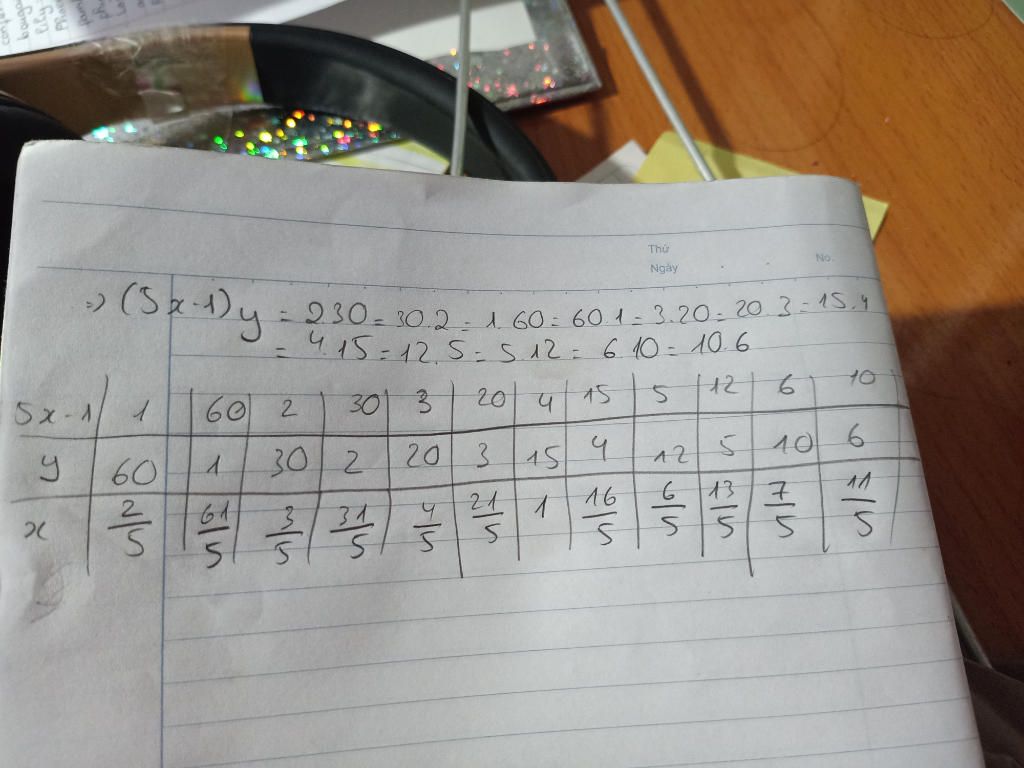 Thứ
Ngày
No.
=> (5x-1)y = 2.30 = 30.2 = 1.60 = 60.1 = 3.20 = 20.3 = 15.4
= 4.15 = 12.5 = 5.12 = 6.10 = 10.6
5x-1 1 60 2 30 3 20 4 15 5 12 6 10
y 60 1 30 2 20 3 15 4 12 5 10 6
x 2/5 61/5 3/5 31/5 4/5 21/5 1 16/5 6/5 13/5 7/5 11/5